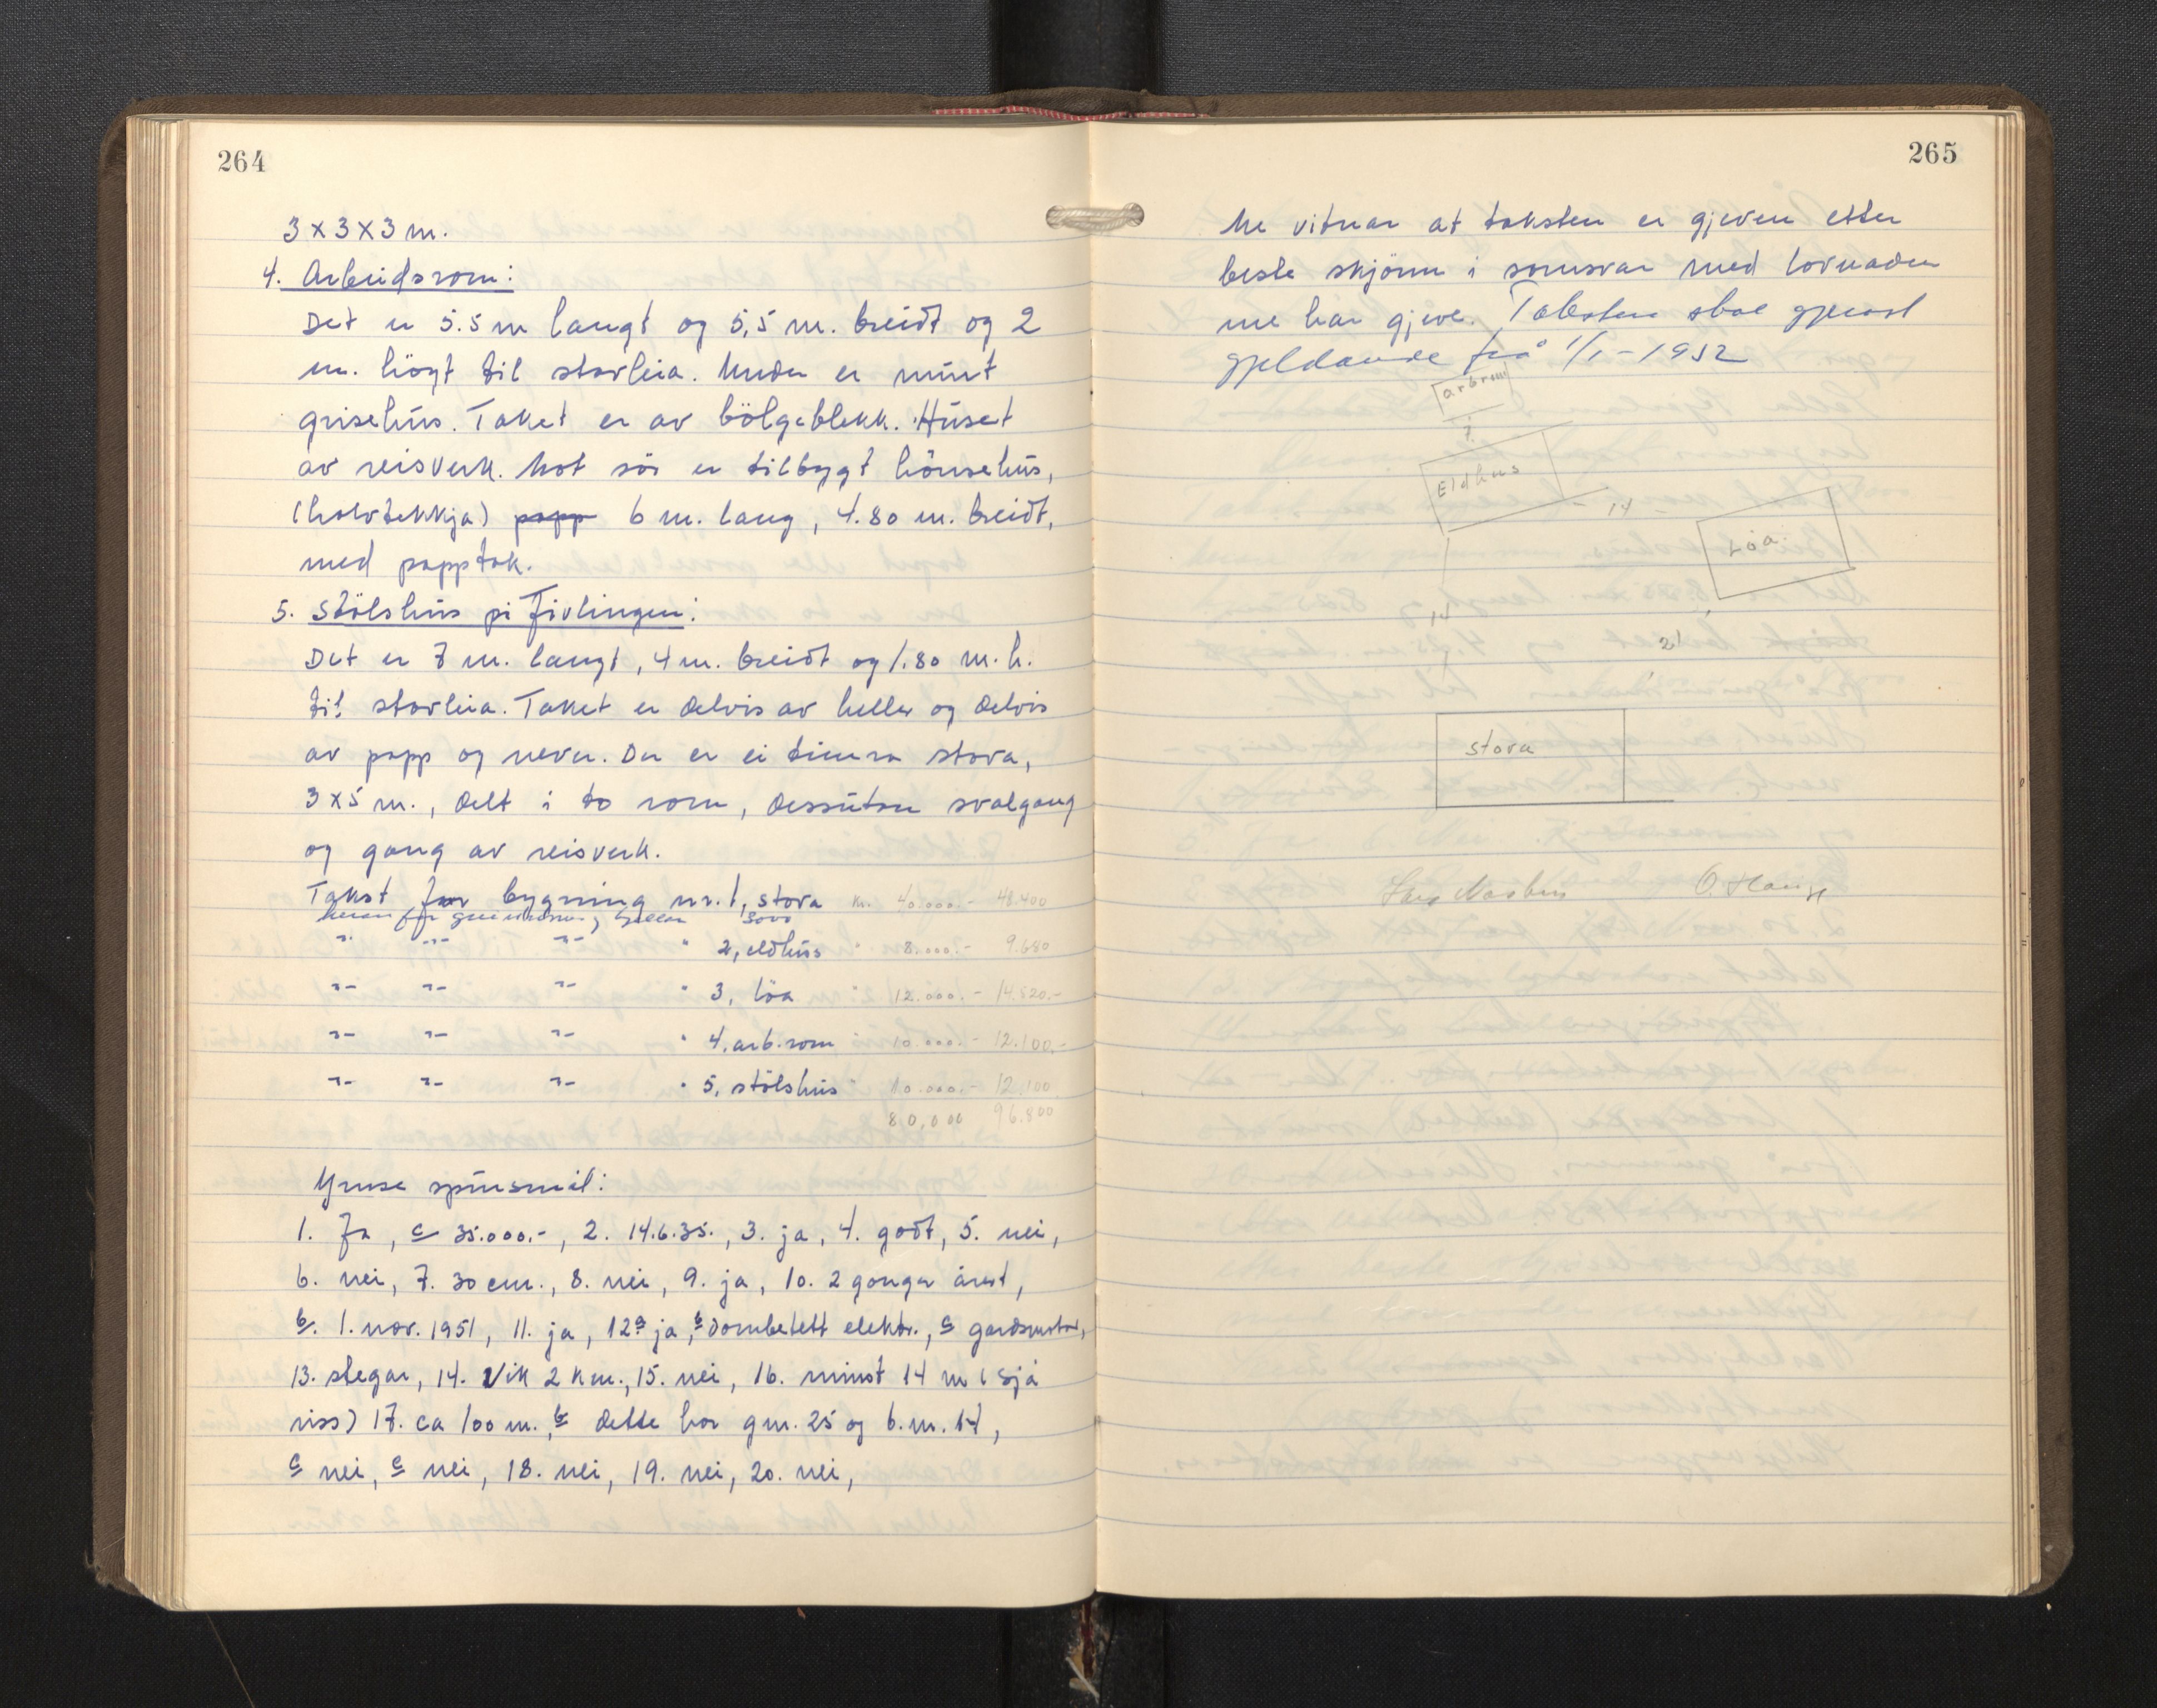 264
3 x 3 x 3 m.
4. Arbeidsrom:
Det er 5.5 m langt og 5,5 m. breidt og 2
m. högt til stavleia. Under er murt
grisehus. Taket er av bölgeblekk. Huset
av reisverk. Mot sör er tilbygt hönsehus,
(halvtekkja) papp 6 m. lang, 4.80 m. breidt,
med papptak.
5. Stölshus på Fivlingen:
Det er 7 m. langt, 4 m. breidt og 1.80 m. h.
til stavleia. Taket er delvis av heller og delvis
av papp og never. Der er ei timra stova,
3 x 5 m., delt i to rom, dessutan svalgang
og gang av reisverk.
Takst for bygning nr. 1, stova kr. 40.000.- 48.400
herav for grunnmur, 5000
"- "- "- " 2, eldhus " 8.000.- 9.680
"- "- "- " 3, löa " 12.000.- 14.520.-
"- "- "- " 4. arb.rom " 10.000.- 12.100.-
"- "- "- " 5, stölshus " 10.000.- 12.100
80,000 96.800
Ymse spursmål:
1. Ja, c 35.000.-, 2. 14.6.35., 3. ja, 4. godt, 5. nei,
6. nei, 7. 30 cm., 8. nei, 9. ja, 10. 2 gonger året,
b. 1. nov. 1951, 11. ja, 12 a ja, b dombetett elektr., c gardsmotor,
13. stegar, 14. Vik 2 km., 15. nei, 16. minst 14 m (sjå
riss) 17. ca 100 m., b dette har gnr. 25 og b.nr. 17,
c nei, e nei, 18. nei, 19. nei, 20. nei,
265
Me vitnar at taksten er gjeven etter
beste skjönn i samsvar med lovnaden
me har gjeve. Taksten skal gjerast
gjeldande frå 1/1 - 1952
arbrom
7.
Eldhus
- 14 -
Löa
14
21
stova
O. Hauge